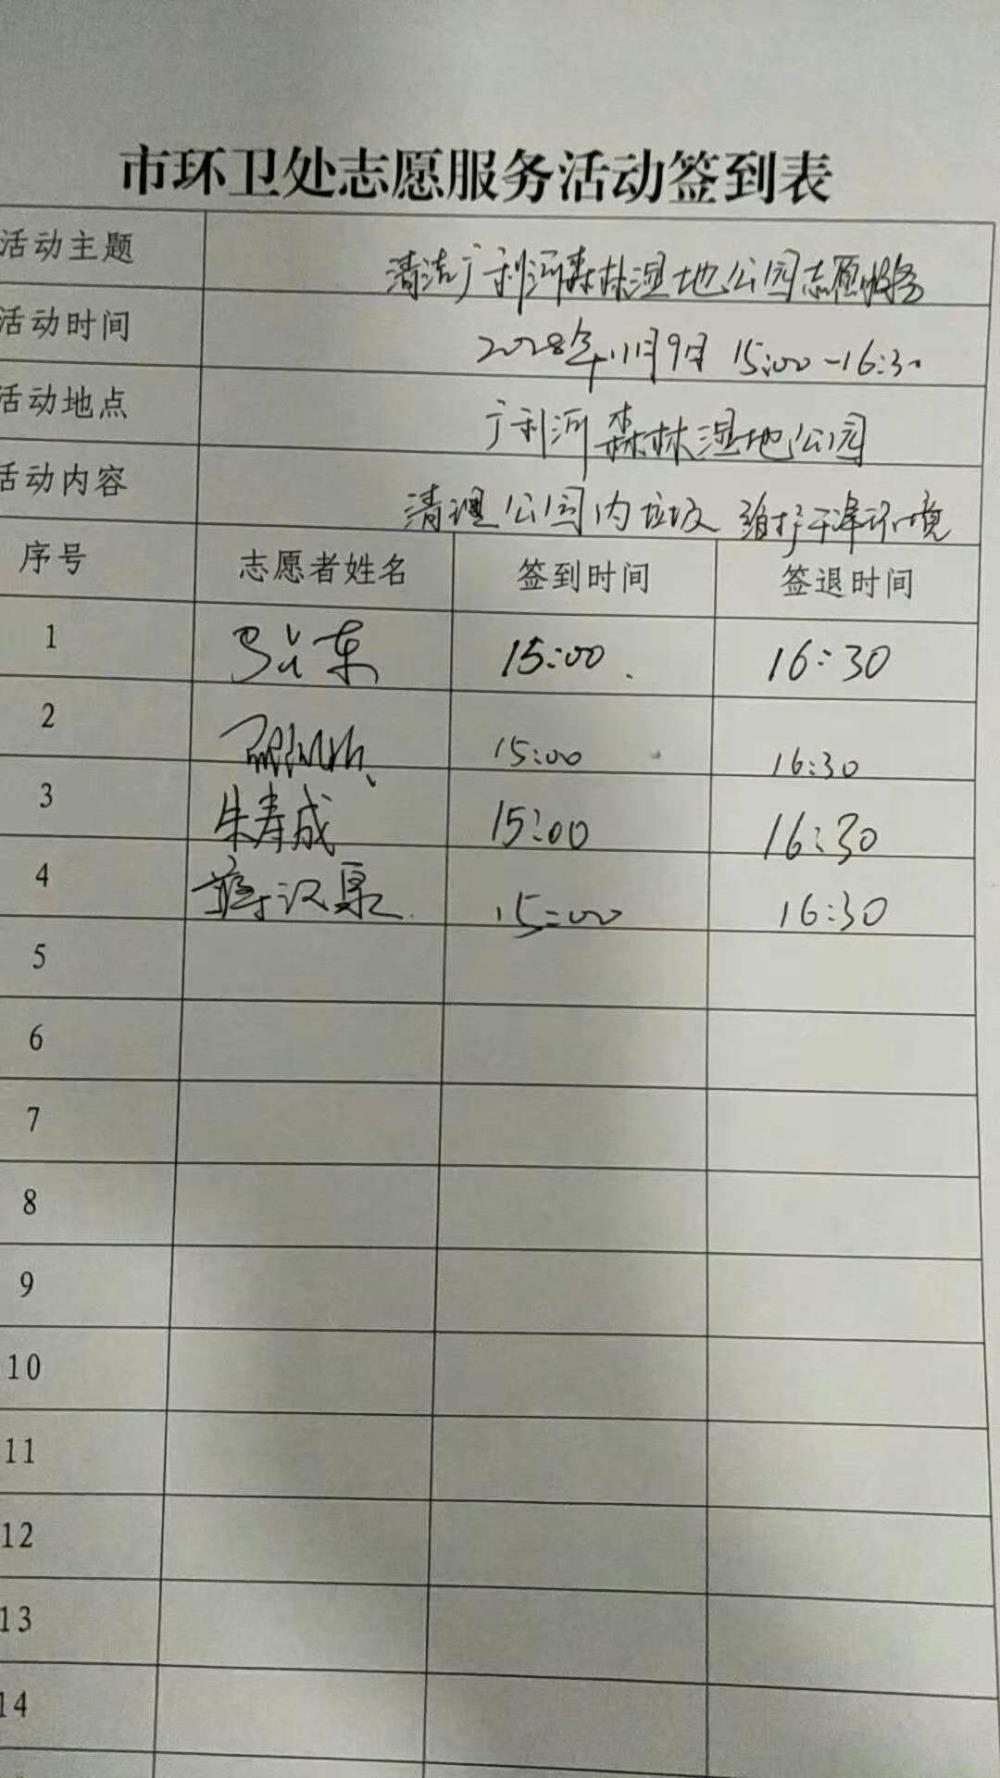 市环卫处志愿服务活动签到表
活动主题 清洁广利河森林湿地公园志愿服务
活动时间 2028年11月9日 15:00-16:30
活动地点 广利河森林湿地公园
活动内容 清理公园内垃圾 维护干净环境
序号 志愿者姓名 签到时间 签退时间
1 15:00 16:30
2 15:00 16:30
3 朱寿成 15:00 16:30
4 15:00 16:30
5
6
7
8
9
10
11
12
13
14